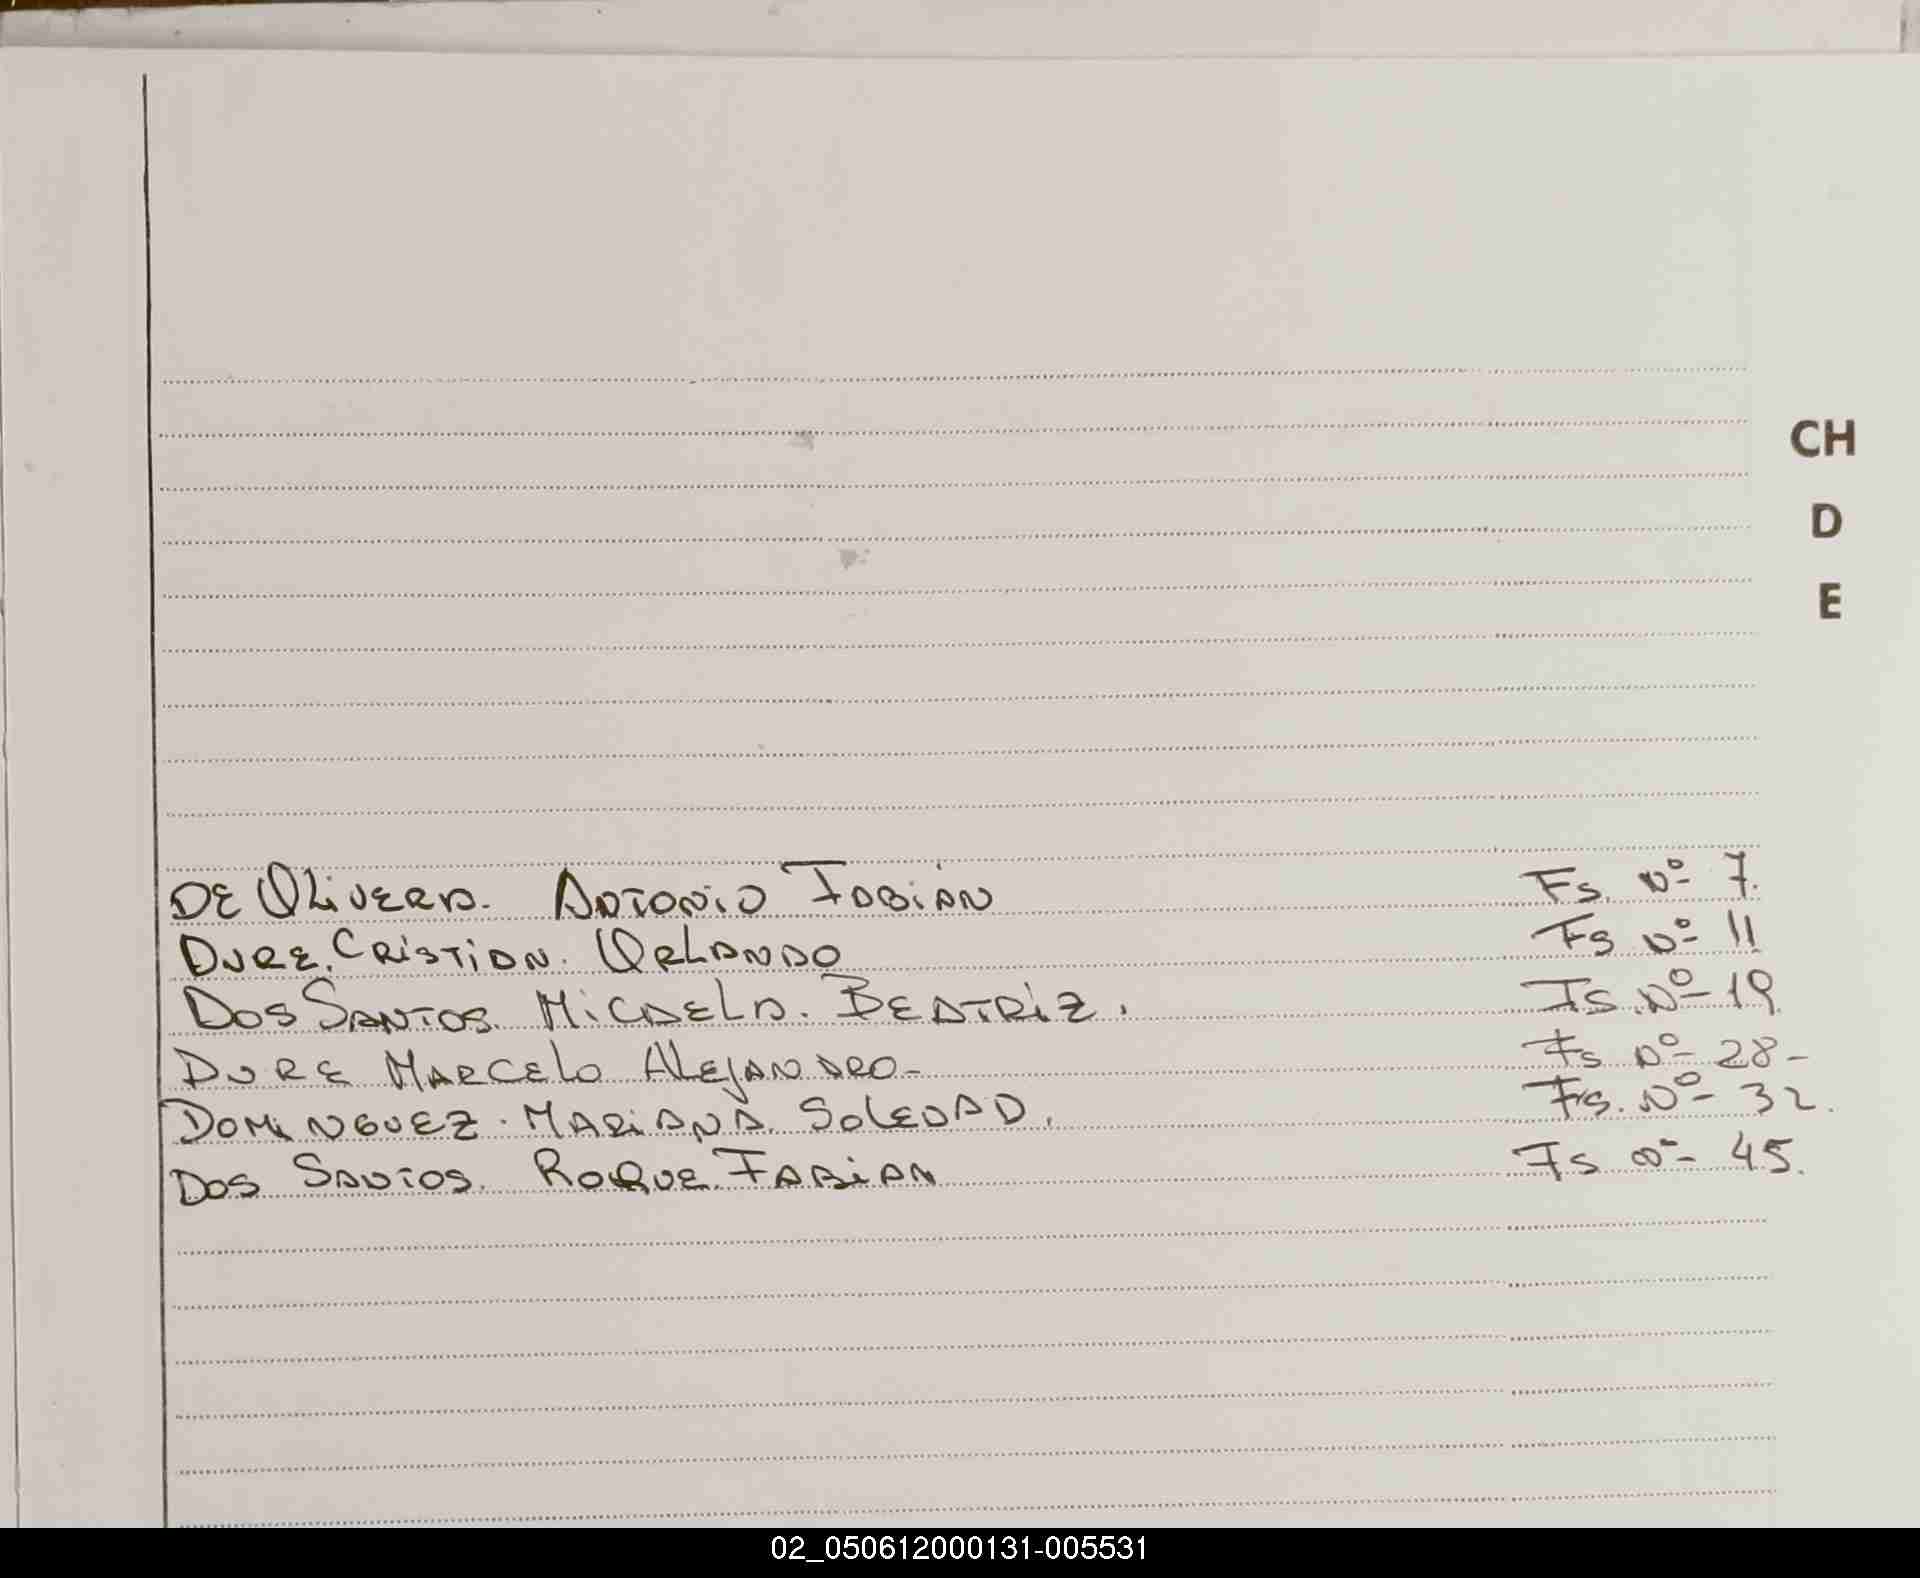 CH
D
E
DE OLIVERA. ANTONIO FABIÁN Fs. Nº 7.
DURE. CRISTIAN. ORLANDO Fs Nº 11
DOS SANTOS. MICAELA. BEATRIZ. Fs. Nº 19.
DURE MARCELO ALEJANDRO- Fs Nº 28-
DOMINGUEZ. MARIANA. SOLEDAD. Fs. Nº 32.
DOS SANTOS. ROQUE. FABIAN Fs Nº 45.
02_050612000131-005531